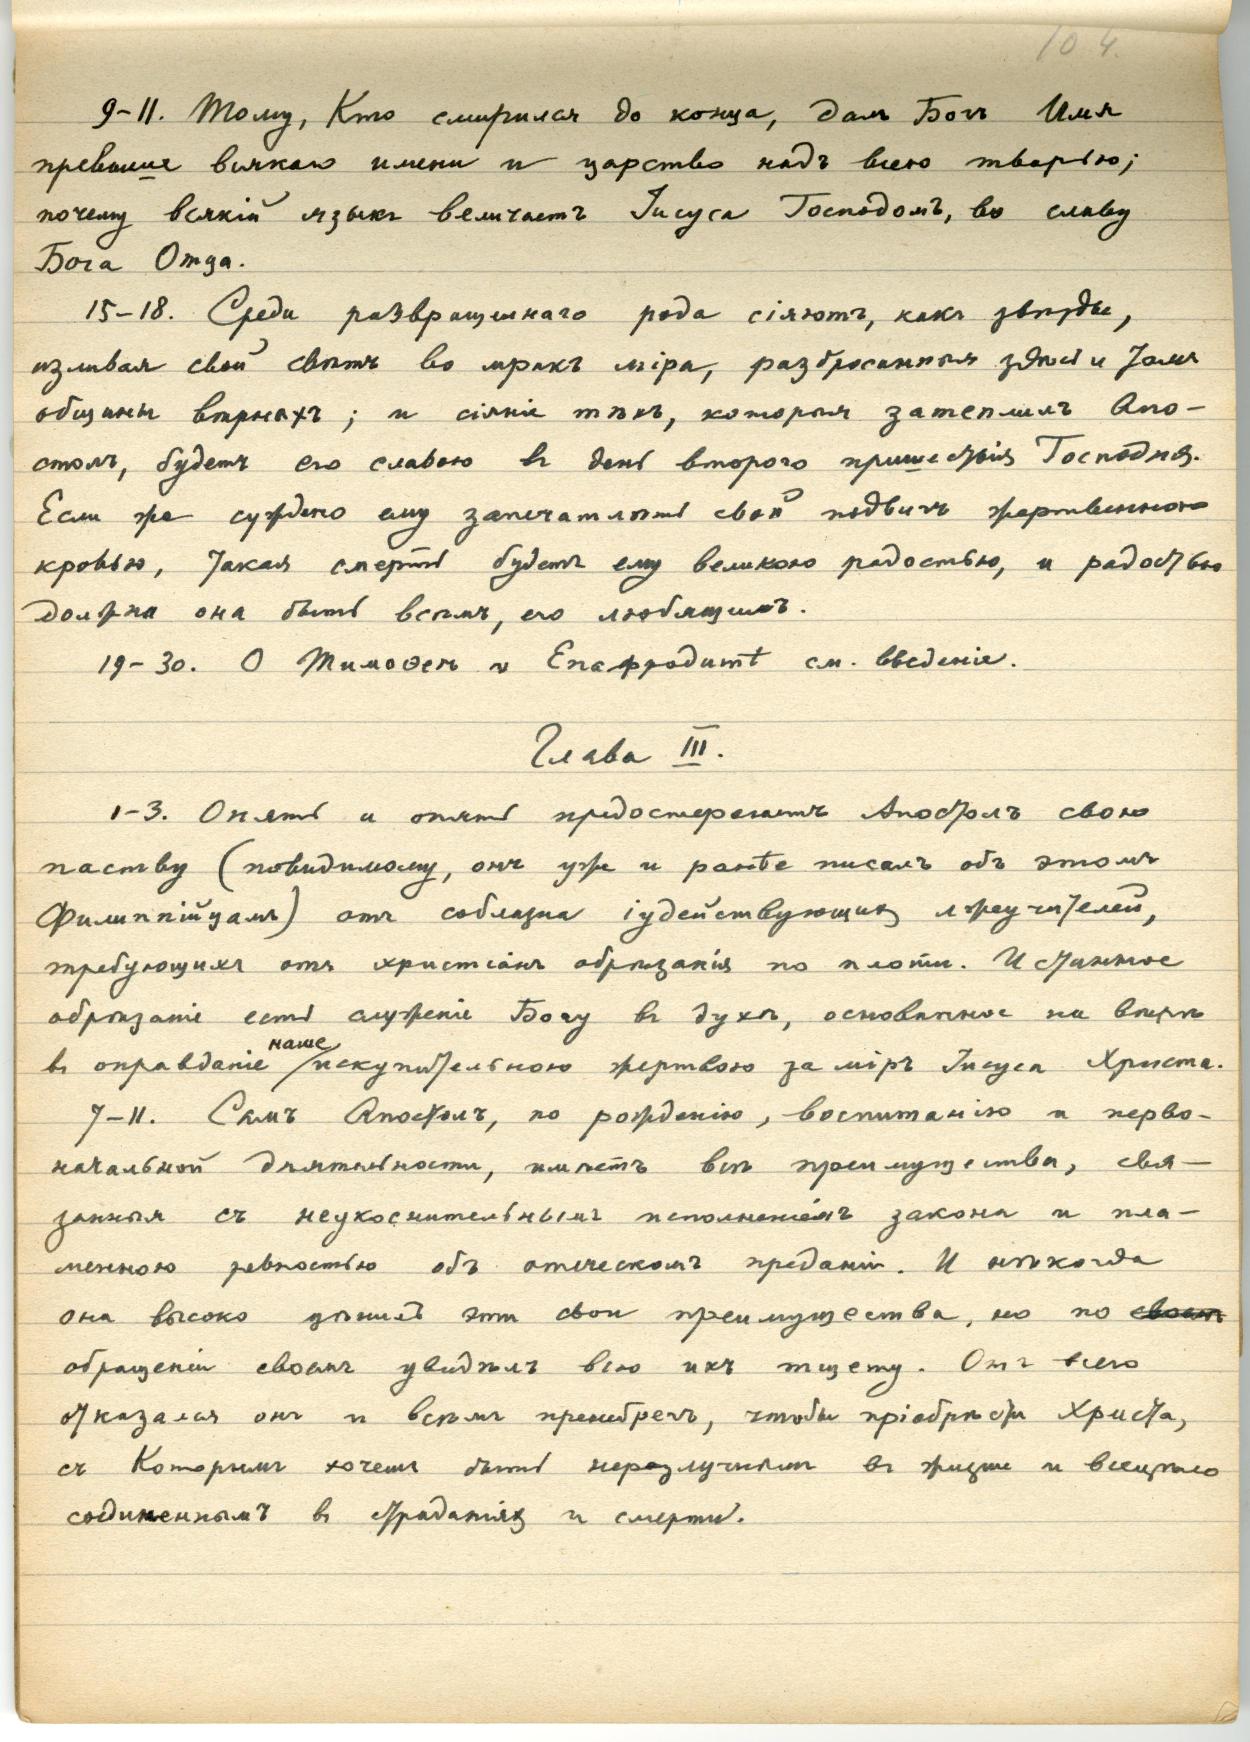 104.
9–11. Тому, Кто смирился до конца, далъ Богъ Имя
превыше всякаго имени и царство надъ всею тварью;
почему всякій языкъ величаетъ Іисуса Господомъ, во славу
Бога Отца.
15–18. Среди развращеннаго рода сіяютъ, какъ звѣзды,
изливая свой свѣтъ во мракъ міра, разбросанныя здѣсь и тамъ
общины вѣрныхъ; и сіяніе тѣхъ, которыя затеплилъ Апо–
столъ, будетъ его славою въ день второго пришествія Господня.
Если же суждено ему запечатлѣть свой подвигъ жертвенною
кровью, такая смерть будетъ ему великою радостью, и радостью
должна она быть всѣмъ, его любящимъ.
19–30. О Тимоѳеѣ и Епафродитѣ см. введеніе.
Глава III.
1–3. Опять и опять предостерегаетъ Апостолъ свою
паству (повидимому, онъ уже и ранѣе писалъ объ этомъ
Филиппійцамъ) отъ соблазна іудействующихъ лжеучителей,
требующихъ отъ христіанъ обрѣзанія по плоти. Истинное
обрѣзаніе есть служеніе Богу въ духѣ, основанное на вѣрѣ
въ оправданіе наше искупительною жертвою за міръ Іисуса Христа.
7–11. Самъ Апостолъ, по рожденію, воспитанію и перво–
начальной дѣятельности, имѣетъ всѣ преимущества, свя–
занныя съ неукоснительнымъ исполненіемъ закона и пла–
менною ревностью объ отеческомъ преданіи. И нѣкогда
она высоко цѣнилъ эти свои преимущества, но по своемъ
обращеніи своемъ увидѣлъ всю ихъ тщету. Отъ всего
отказался онъ и всѣмъ пренебрегъ, чтобы пріобрѣсти Христа,
съ Которымъ хочетъ быть неразлучнымъ въ жизни и всецѣло
соединеннымъ въ страданіяхъ и смерти.